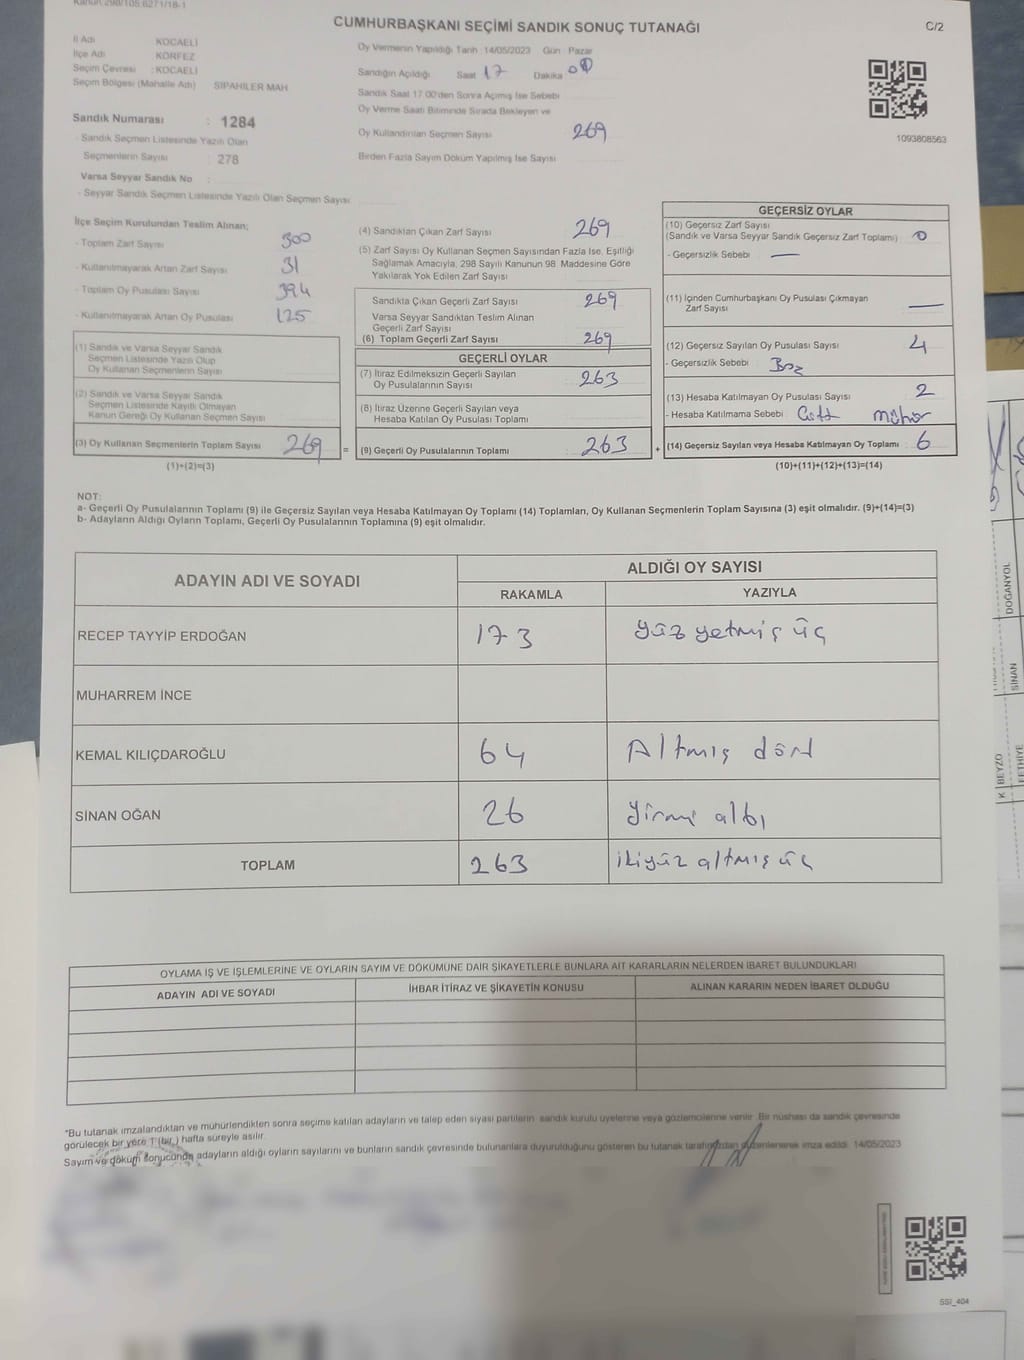 Kanun 298/105,6271/18-1
CUMHURBAŞKANI SEÇİMİ SANDIK SONUÇ TUTANAĞI
C/2
İl Adı KOCAELİ
İlçe Adı KÖRFEZ
Seçim Çevresi : KOCAELİ
Seçim Bölgesi (Mahalle Adı) SİPAHİLER MAH
Sandık Numarası : 1284
- Sandık Seçmen Listesinde Yazılı Olan
Seçmenlerin Sayısı : 278
Varsa Seyyar Sandık No :
- Seyyar Sandık Seçmen Listesinde Yazılı Olan Seçmen Sayısı
Oy Vermenin Yapıldığı Tarih :14/05/2023 Gün Pazar
Sandığın Açıldığı Saat 17 Dakika
Sandık Saat 17.00'den Sonra Açılmış İse Sebebi
Oy Verme Saati Bitiminde Sırada Bekleyen ve
Oy Kullandırılan Seçmen Sayısı 269
Birden Fazla Sayım Döküm Yapılmış İse Sayısı
1093808563
İlçe Seçim Kurulundan Teslim Alınan;
- Toplam Zarf Sayısı 300
- Kullanılmayarak Artan Zarf Sayısı 31
- Toplam Oy Pusulası Sayısı 394
- Kullanılmayarak Artan Oy Pusulası 125
(1) Sandık ve Varsa Seyyar Sandık
Seçmen Listesinde Yazılı Olup
Oy Kullanan Seçmenlerin Sayısı
(2) Sandık ve Varsa Seyyar Sandık
Seçmen Listesinde Kayıtlı Olmayan
Kanun Gereği Oy Kullanan Seçmen Sayısı
(3) Oy Kullanan Seçmenlerin Toplam Sayısı 269 =
(1)+(2)=(3)
(4) Sandıktan Çıkan Zarf Sayısı 269
(5) Zarf Sayısı Oy Kullanan Seçmen Sayısından Fazla İse, Eşitliği
Sağlamak Amacıyla, 298 Sayılı Kanunun 98. Maddesine Göre
Yakılarak Yok Edilen Zarf Sayısı
Sandıkta Çıkan Geçerli Zarf Sayısı 269
Varsa Seyyar Sandıktan Teslim Alınan
Geçerli Zarf Sayısı
(6) Toplam Geçerli Zarf Sayısı 269
GEÇERLİ OYLAR
(7) İtiraz Edilmeksizin Geçerli Sayılan
Oy Pusulalarının Sayısı 263
(8) İtiraz Üzerine Geçerli Sayılan veya
Hesaba Katılan Oy Pusulası Toplamı
(9) Geçerli Oy Pusulalarının Toplamı 263 +
GEÇERSİZ OYLAR
(10) Geçersiz Zarf Sayısı
(Sandık ve Varsa Seyyar Sandık Geçersiz Zarf Toplamı) : 0
- Geçersizlik Sebebi : —
(11) İçinden Cumhurbaşkanı Oy Pusulası Çıkmayan
Zarf Sayısı : —
(12) Geçersiz Sayılan Oy Pusulası Sayısı : 4
- Geçersizlik Sebebi : Boş
(13) Hesaba Katılmayan Oy Pusulası Sayısı : 2
- Hesaba Katılmama Sebebi : Çift mühür
(14) Geçersiz Sayılan veya Hesaba Katılmayan Oy Toplamı : 6
(10)+(11)+(12)+(13)=(14)
NOT:
a- Geçerli Oy Pusulalarının Toplamı (9) ile Geçersiz Sayılan veya Hesaba Katılmayan Oy Toplamı (14) Toplamları, Oy Kullanan Seçmenlerin Toplam Sayısına (3) eşit olmalıdır. (9)+(14)=(3)
b- Adayların Aldığı Oyların Toplamı, Geçerli Oy Pusulalarının Toplamına (9) eşit olmalıdır.
ADAYIN ADI VE SOYADI
ALDIĞI OY SAYISI
RAKAMLA YAZIYLA
RECEP TAYYİP ERDOĞAN 173 yüz yetmiş üç
MUHARREM İNCE
KEMAL KILIÇDAROĞLU 64 Altmış dört
SİNAN OĞAN 26 yirmi altı
TOPLAM 263 ikiyüz altmış üç
OYLAMA İŞ VE İŞLEMLERİNE VE OYLARIN SAYIM VE DÖKÜMÜNE DAİR ŞİKAYETLERLE BUNLARA AİT KARARLARIN NELERDEN İBARET BULUNDUKLARI
ADAYIN ADI VE SOYADI İHBAR İTİRAZ VE ŞİKAYETİN KONUSU ALINAN KARARIN NEDEN İBARET OLDUĞU
"Bu tutanak imzalandıktan ve mühürlendikten sonra seçime katılan adayların ve talep eden siyasi partilerin sandık kurulu üyelerine veya gözlemcilerine verilir. Bir nüshası da sandık çevresinde
görülecek bir yere 1 (bir.) hafta süreyle asılır.
Sayım ve döküm sonucunda adayların aldığı oyların sayılarını ve bunların sandık çevresinde bulunanlara duyurulduğunu gösteren bu tutanak tarafımızdan düzenlenerek imza edildi. 14/05/2023
SSİ_404
DOĞANYOL
SİNAN
K BEYZO
FETHİYE